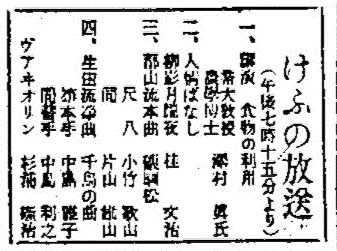 けふの放送
（午後七時十五分より）
一、講演 食物の利用
農大教授
農学博士 澤村 眞氏
二、人情ばなし
柳影月夜 桂 文治
三、都山流本曲 磯馴松
尺八 小竹 歌山
同 片山 山
四、生田流箏曲 千鳥の曲
箏本手 中島 雅子
同替手 中島 利之
ヴアヰオリン 杉浦 治